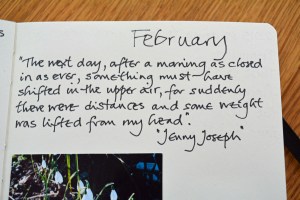 February
"The next day, after a morning as closed
in as ever, something must have
shifted in the upper air, for suddenly
there were distances and some weight
was lifted from my head".
"Jenny Joseph"